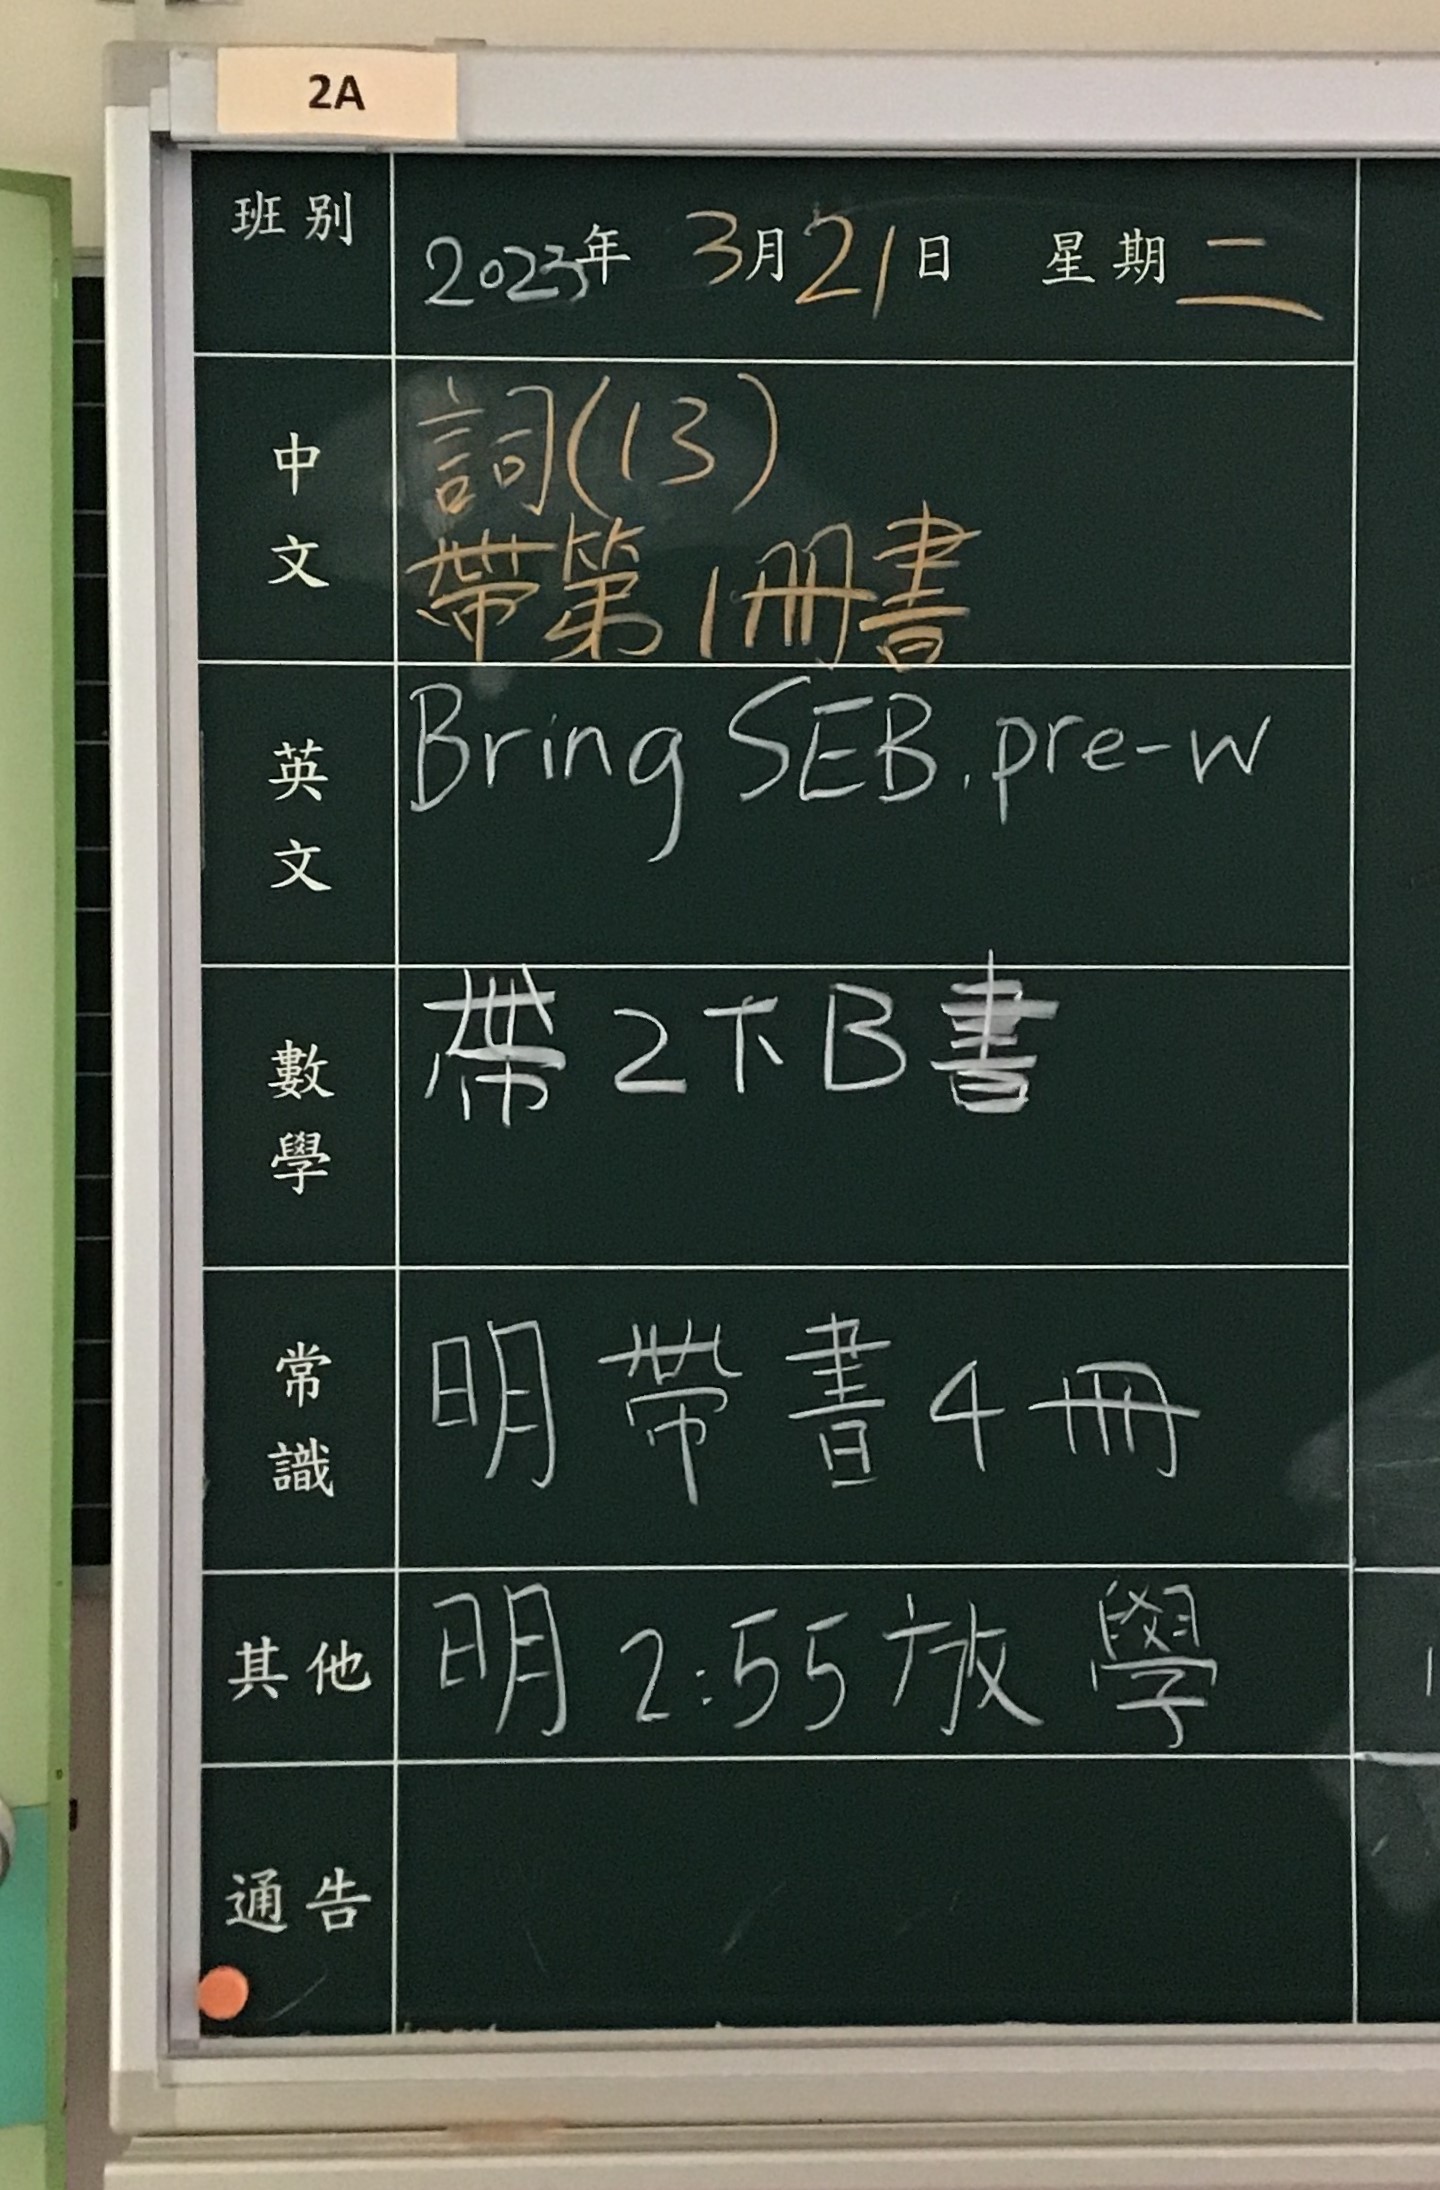 2A
班別
2023年 3月21日 星期二
中文
詞(13)
帶第1冊書
英文
Bring SEB, pre-w
數學
帶2下B書
常識
明帶書4冊
其他
明2:55放學
通告